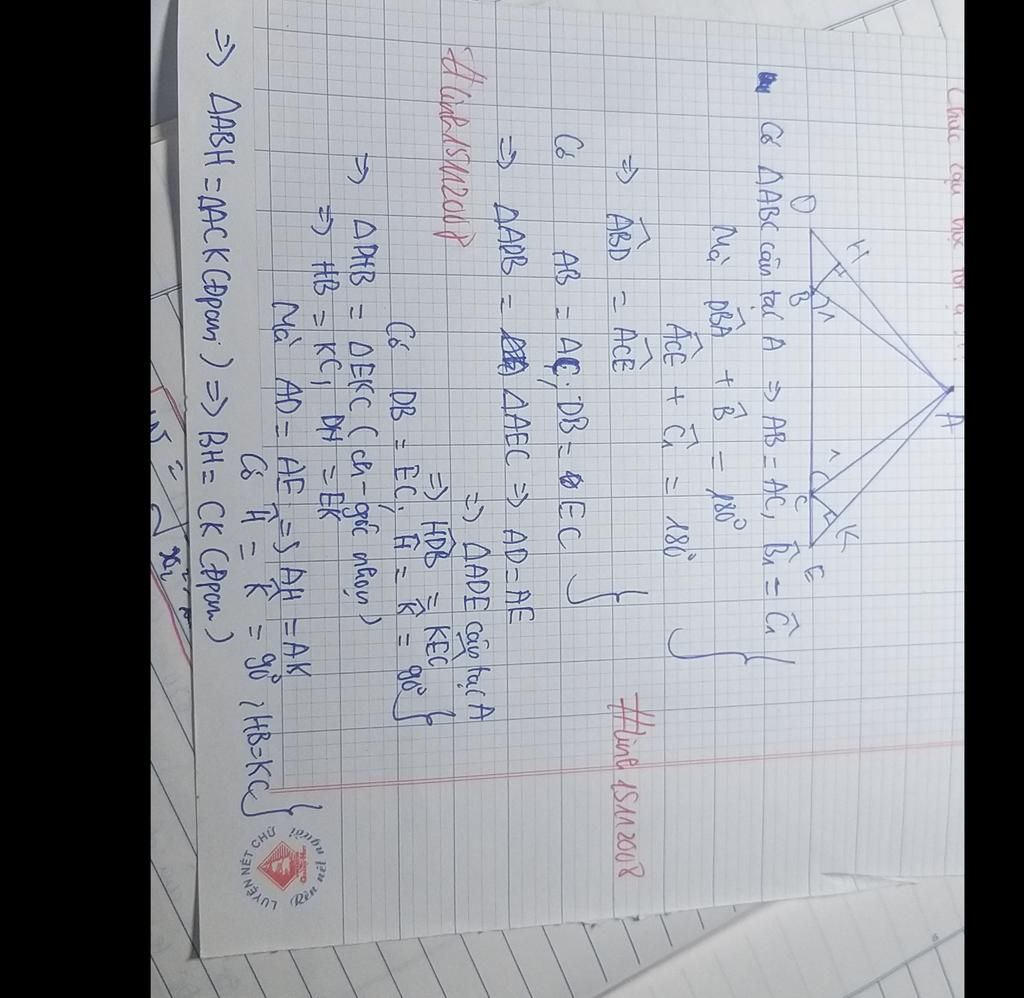 Chúc cậu học tốt ạ
A
H
K
D
B
1
1
C
E
Có ΔABC cân tại A => AB = AC, B̂₁ = Ĉ₁
Mà DBA + B̂ = 180°
ACE + Ĉ₁ = 180°
=> ABD = ACE
Có AB = AC; DB = EC
=> ΔADB = ΔAEC => AD = AE
=> ΔADE cân tại A
#linh15112008
=> HDB = KEC
Có DB = EC, Ĥ = K̂ = 90°
=> ΔDHB = ΔEKC (ch-góc nhọn)
=> HB = KC, DH = EK
Mà AD = AE => AH = AK
Có Ĥ = K̂ = 90°, HB = KC
=> ΔABH = ΔACK (đpcm) => BH = CK (đpcm)
#linh15112008
LUYỆN NÉT CHỮ
Rèn nết người